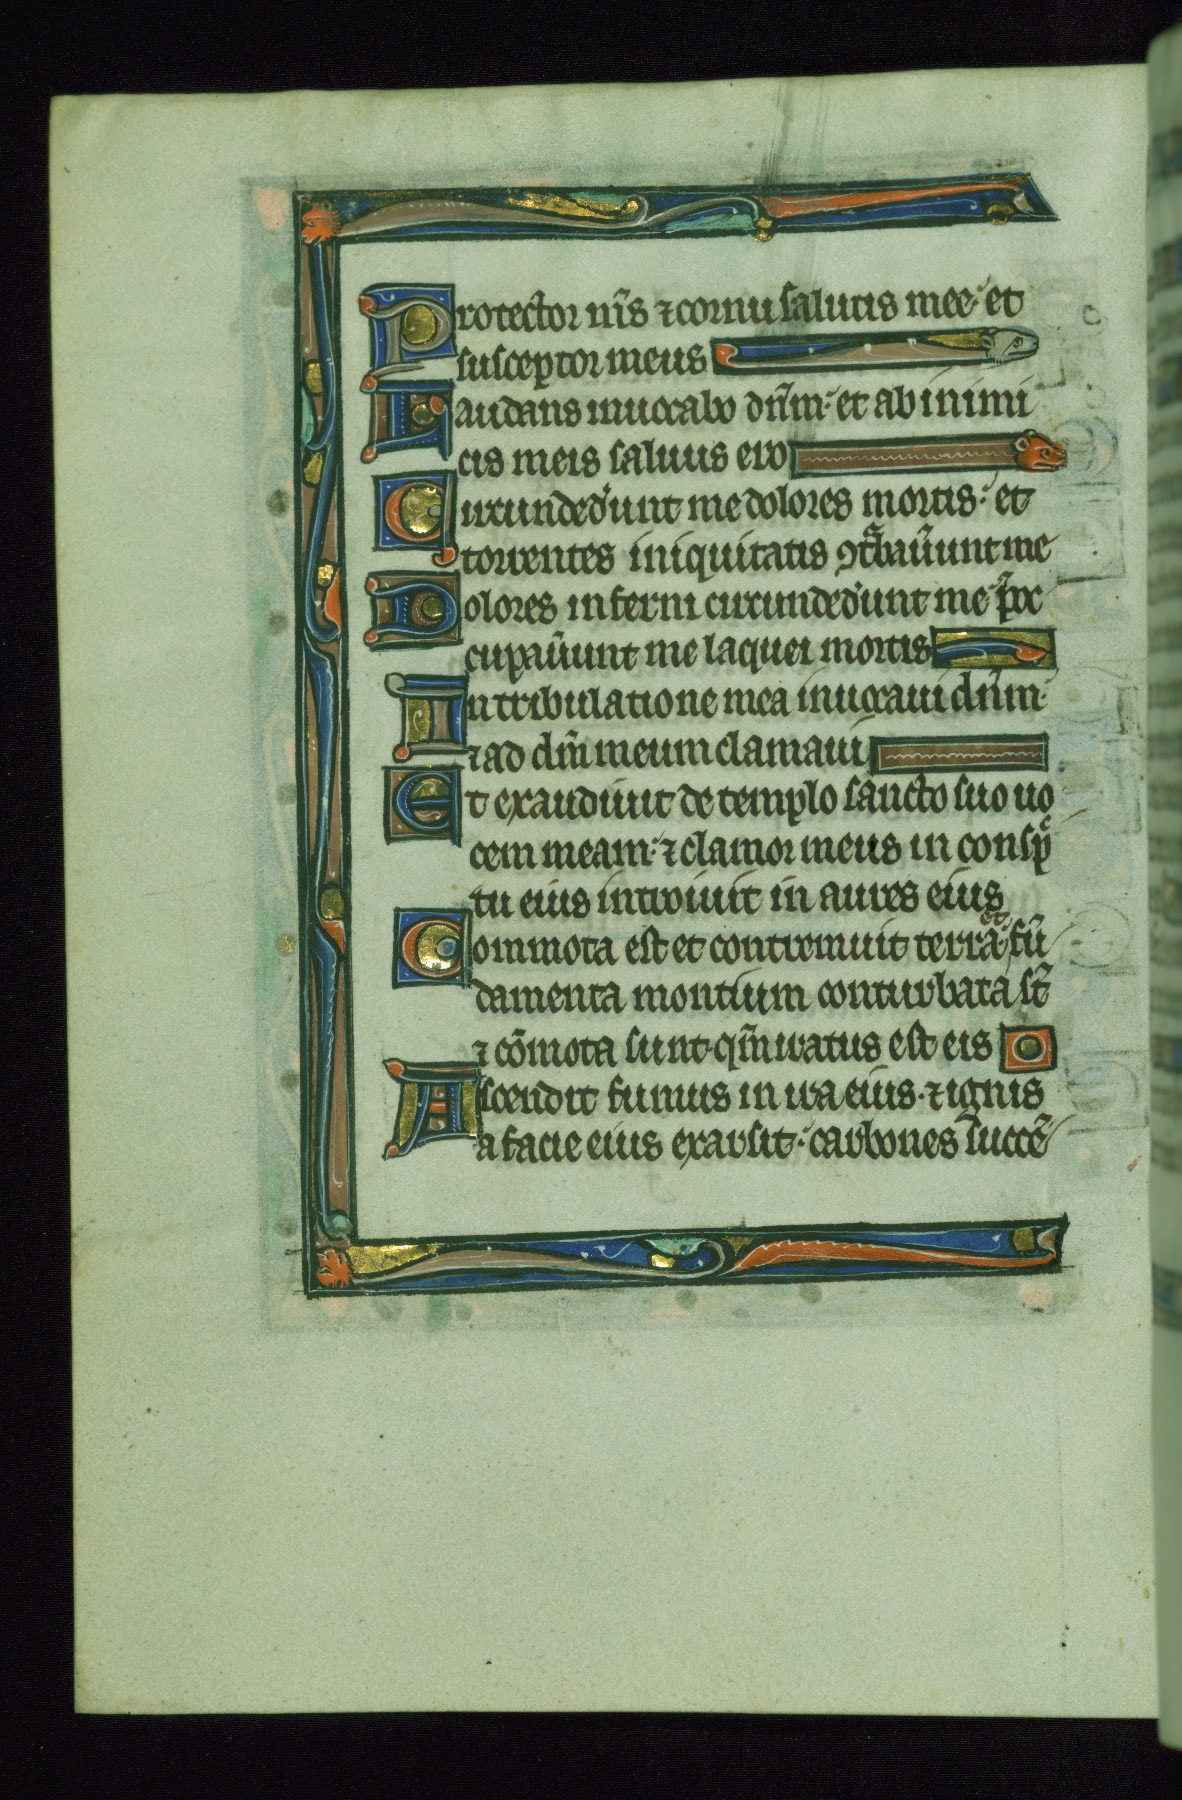 Protector m̄s ⁊ cornu salutis mee· et
susceptor meus
Laudans inuocabo dn̄m· et ab inimi
cis meis saluus ero
Circundeder̄unt me dolores mortis· et
torrentes iniquitatis ꝯt͛bau̅unt me
Dolores inferni circundeder̄unt me· p̄oc
cupau̅unt me laquei mortis
In tribulatione mea inuocaui dn̄m·
⁊ ad dm̄ meum clamaui
Et exaudiuit de templo sancto suo uo
cem meam· ⁊ clamor meus in conspec
tu eius introiuit in aures eius
Commota est et contremuit terra· et fū
damenta montium conturbata st̄
⁊ cōmota sunt· qm̄ iratus est eis
Ascendit fumus in ira eius· ⁊ ignis
a facie eius exarsit· carbones succē